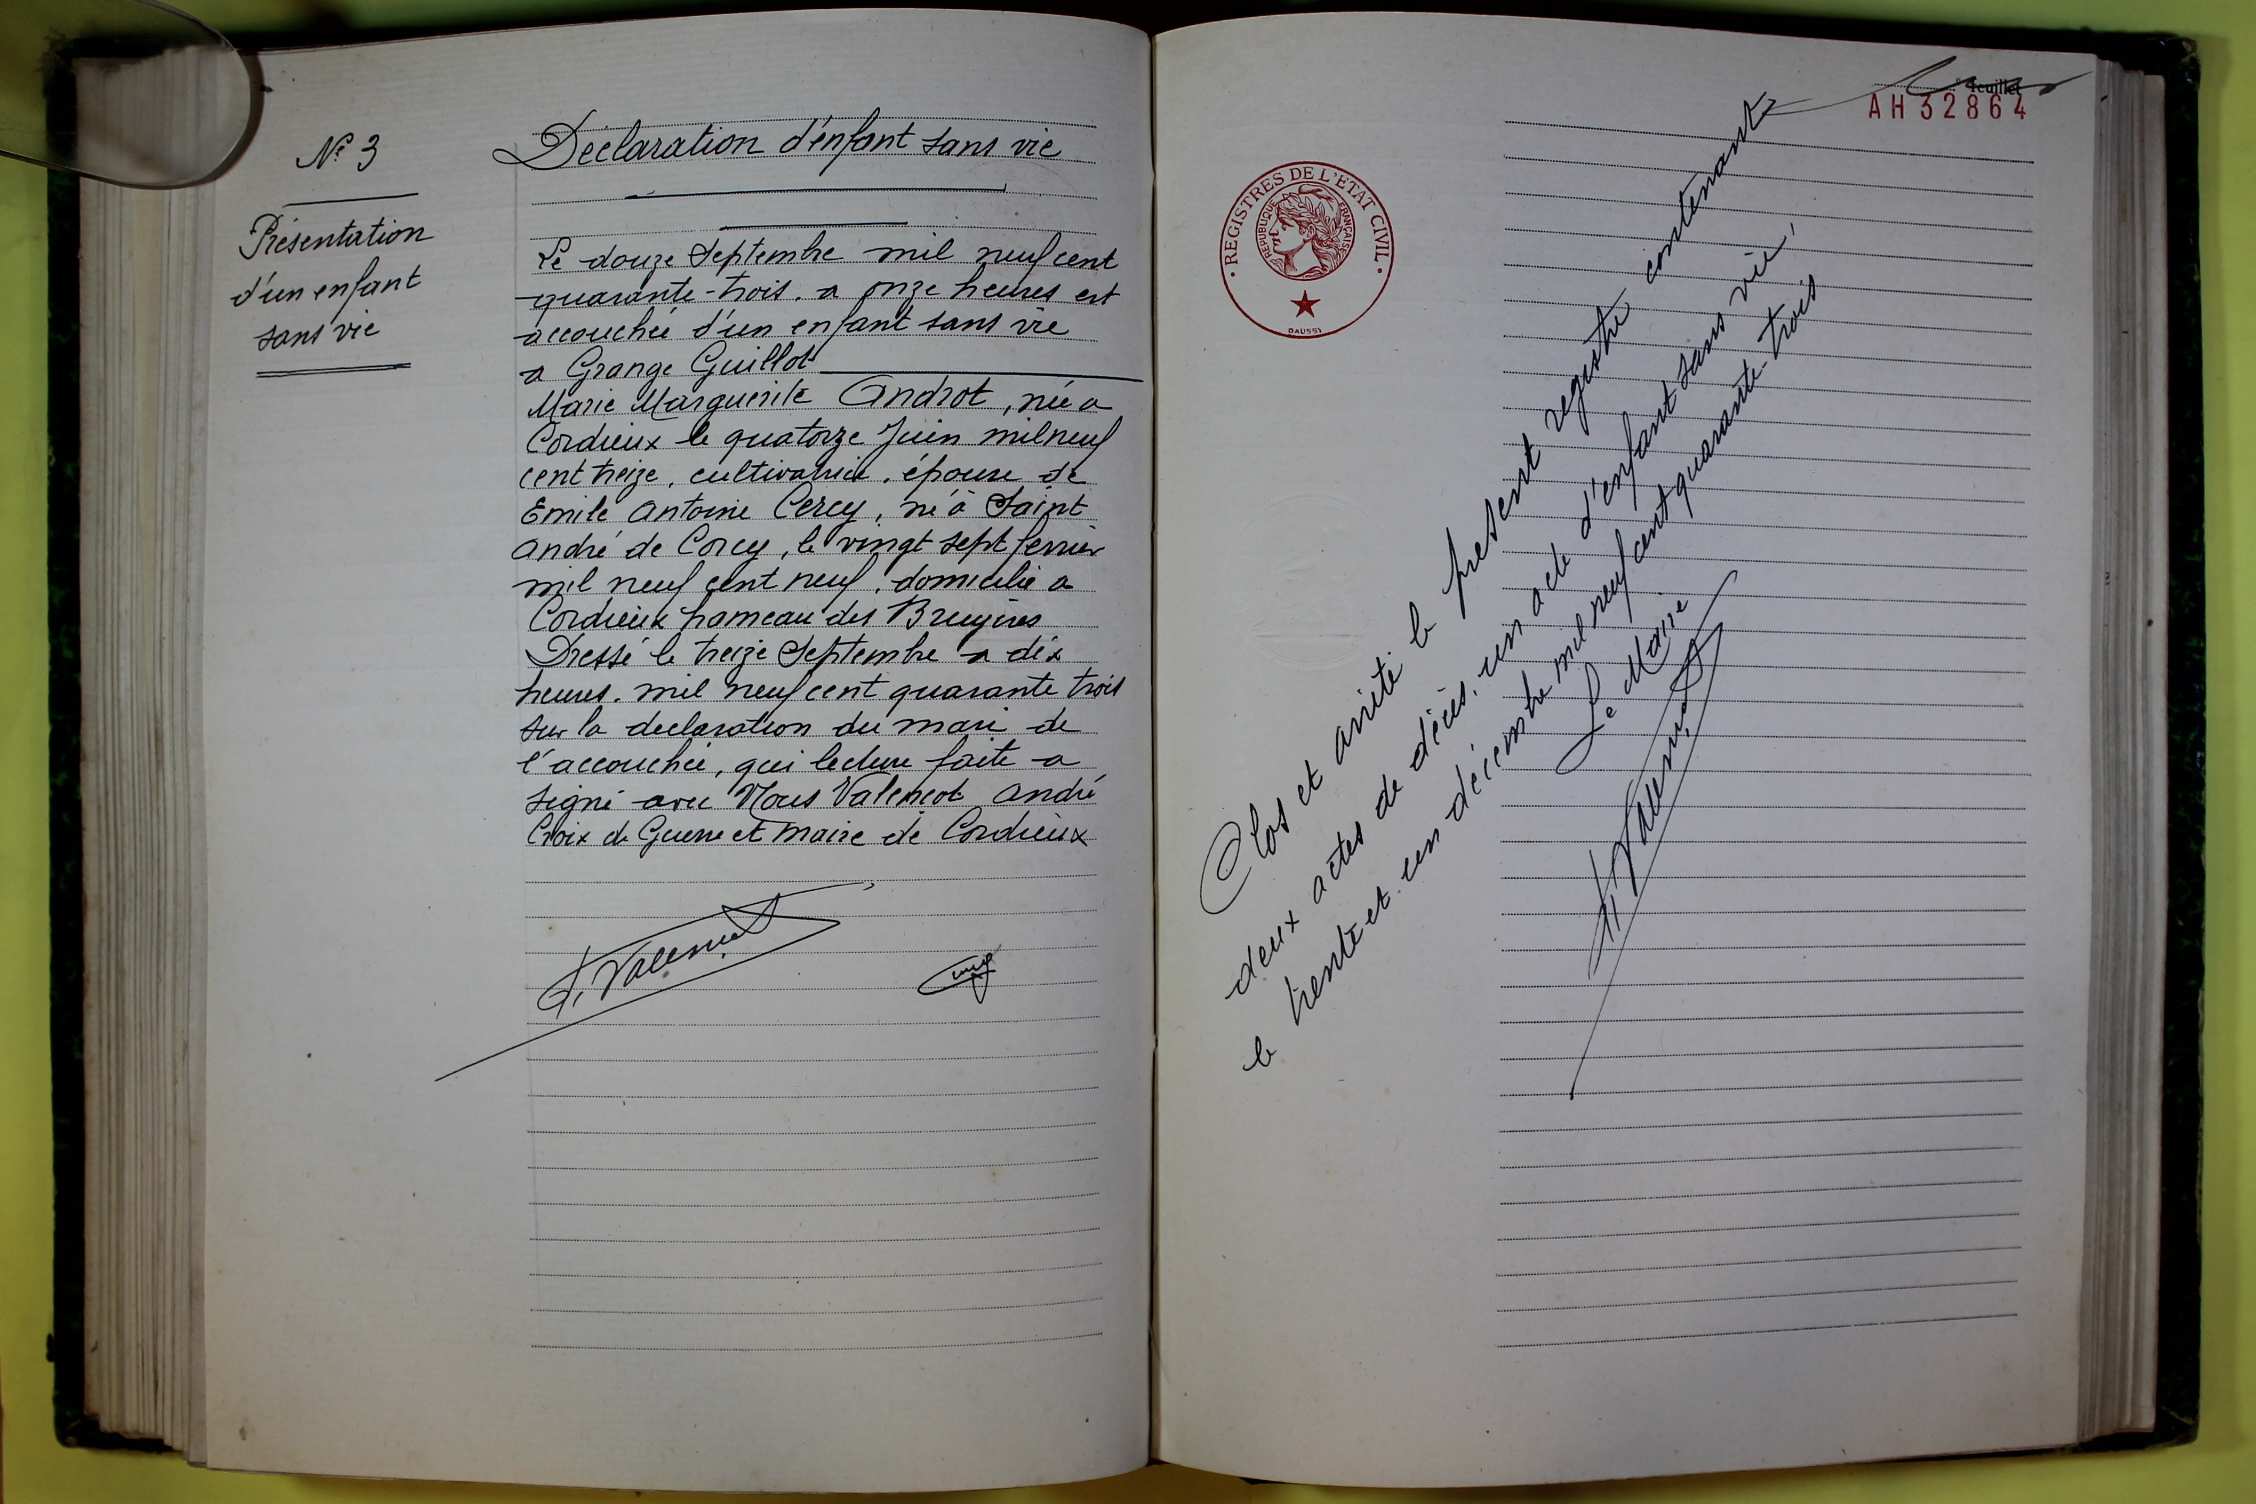 N° 3
Présentation
d'un enfant
sans vie
Déclaration d'enfant sans vie
Le douze Septembre mil neuf cent
quarante-trois. a onze heures est
accouchée d'un enfant sans vie
a Grange Guillot
Marie Marguerite Androt, née a
Cordieux le quatorze Juin mil neuf
cent treize, cultivatrice, épouse de
Emile Antoine Cercy, né à Saint
André de Corcy, le vingt sept fevrier
mil neuf cent neuf, domicilié a
Cordieux hameau des Bruyères
Dressé le treize Septembre a dix
heures. mil neuf cent quarante trois
sur la declaration du mari de
l'accouchée, qui lecture faite a
signé avec Nous Valencot André
Croix de Guerre et Maire de Cordieux
feuillet
AH32864
REGISTRES DE L'ETAT CIVIL
REPUBLIQUE FRANÇAISE
DAUSSI
Clos et arrêté le présent registre contenant
deux actes de décès, un acte d'enfant sans vie,
le trente et un décembre mil neuf cent quarante trois
Le Maire